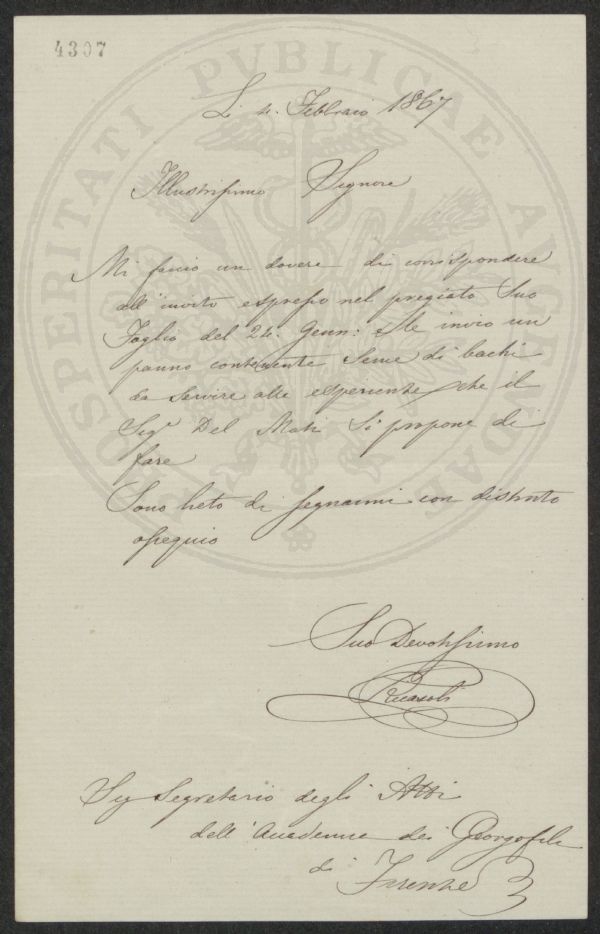 4307
PROSPERITATI PVBLICAE AVGENDAE
Li 4. Febbraio 1867
Illustrissimo Signore
Mi faccio un dovere di corrispondere
all'invito espresso nel pregiato Suo
Foglio del 24. Genn: e Le invio un
panno contenente Seme di bachi
da Servire alle esperienze che il
Sigr Del Si propone di
fare
Sono lieto di segnarmi con distinto
ossequio
Suo Devotissimo
Ricasoli
Sig Segretario degli Atti
dell'Accademia dei Georgofili
di Firenze